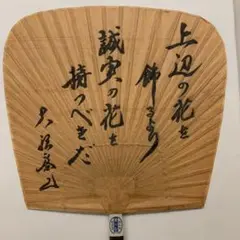 上辺の花を
飾るより
誠実の花を
持つべきだ